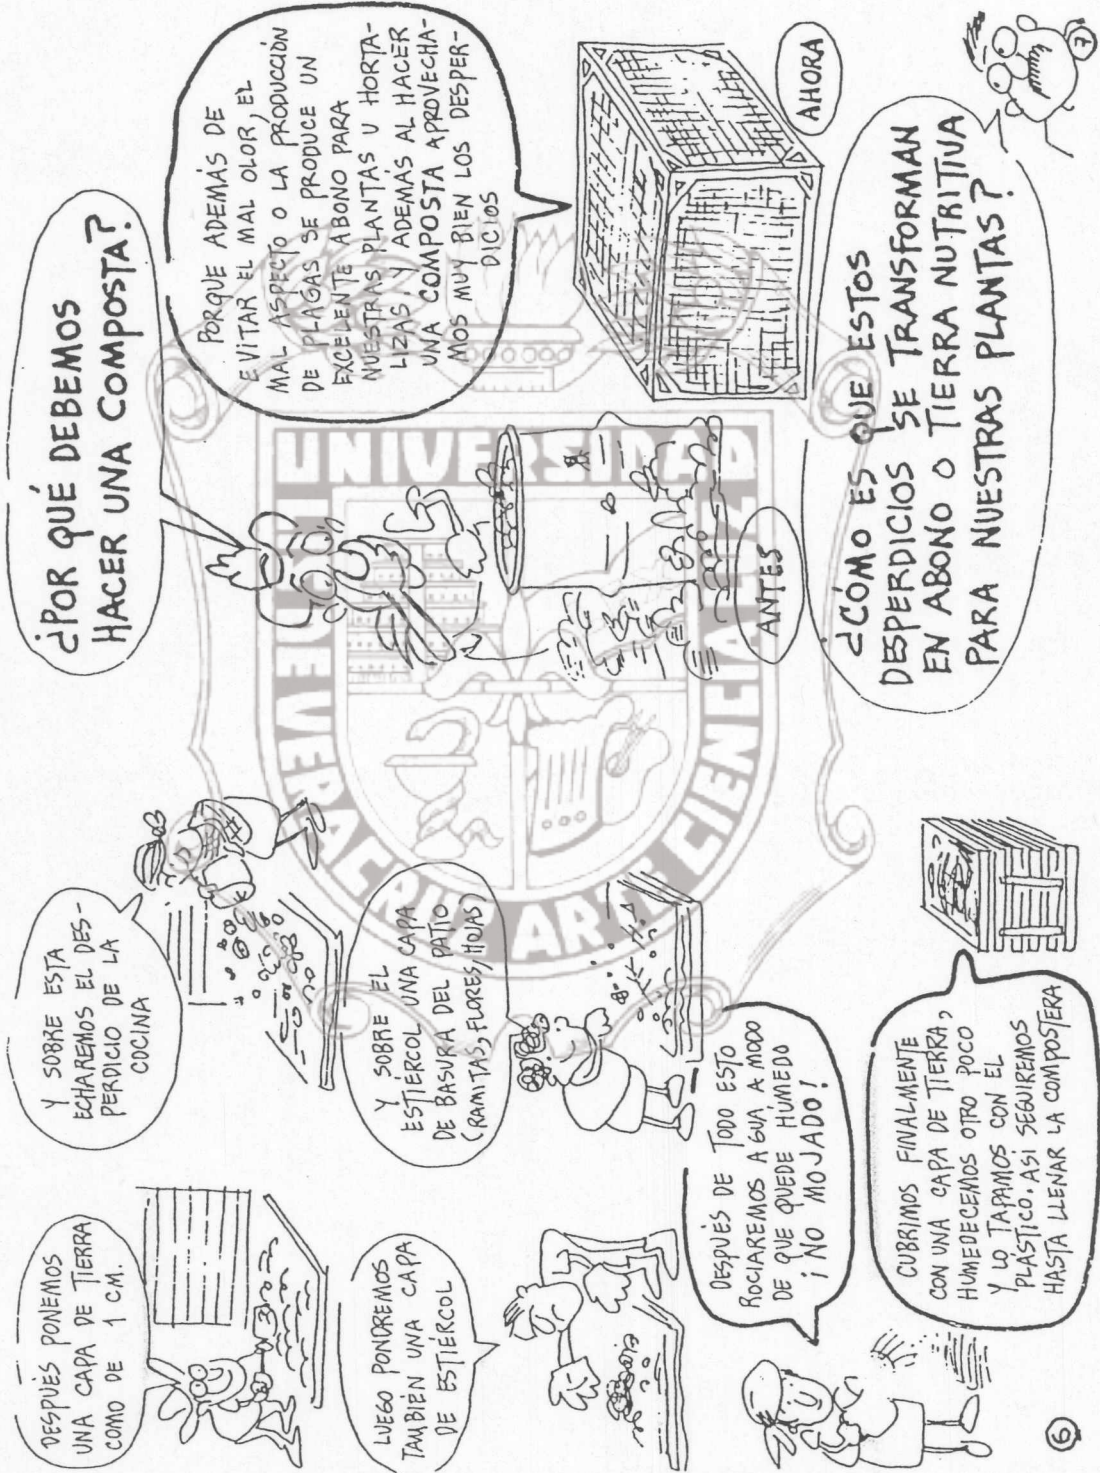 DESPUÉS PONEMOS
UNA CAPA DE TIERRA
COMO DE 1 C.M.
Y SOBRE ESTA
ECHAREMOS EL DES-
PERDICIO DE LA
COCINA
LUEGO PONDREMOS
TAMBIÉN UNA CAPA
DE ESTIÉRCOL
Y SOBRE EL
ESTIÉRCOL UNA CAPA
DE BASURA DEL PATIO
(RAMITAS, FLORES, HOJAS)
DESPUÉS DE TODO ESTO
ROCIAREMOS AGUA A MODO
DE QUE QUEDE HÚMEDO
¡NO MOJADO!
CUBRIMOS FINALMENTE
CON UNA CAPA DE TIERRA,
HUMEDECEMOS OTRO POCO
Y LO TAPAMOS CON EL
PLÁSTICO. ASI SEGUIREMOS
HASTA LLENAR LA COMPOSTERA
6
¿POR QUÉ DEBEMOS
HACER UNA COMPOSTA?
PORQUE ADEMÁS DE
EVITAR EL MAL OLOR, EL
MAL ASPECTO O LA PRODUCCIÓN
DE PLAGAS SE PRODUCE UN
EXCELENTE ABONO PARA
NUESTRAS PLANTAS U HORTA-
LIZAS Y ADEMÁS AL HACER
UNA COMPOSTA APROVECHA-
MOS MUY BIEN LOS DESPER-
DICIOS
ANTES
AHORA
¿CÓMO ES QUE ESTOS
DESPERDICIOS SE TRANSFORMAN
EN ABONO O TIERRA NUTRITIVA
PARA NUESTRAS PLANTAS?
7
UNIVERSIDAD
VERACRUZ ARTE CIENCIA